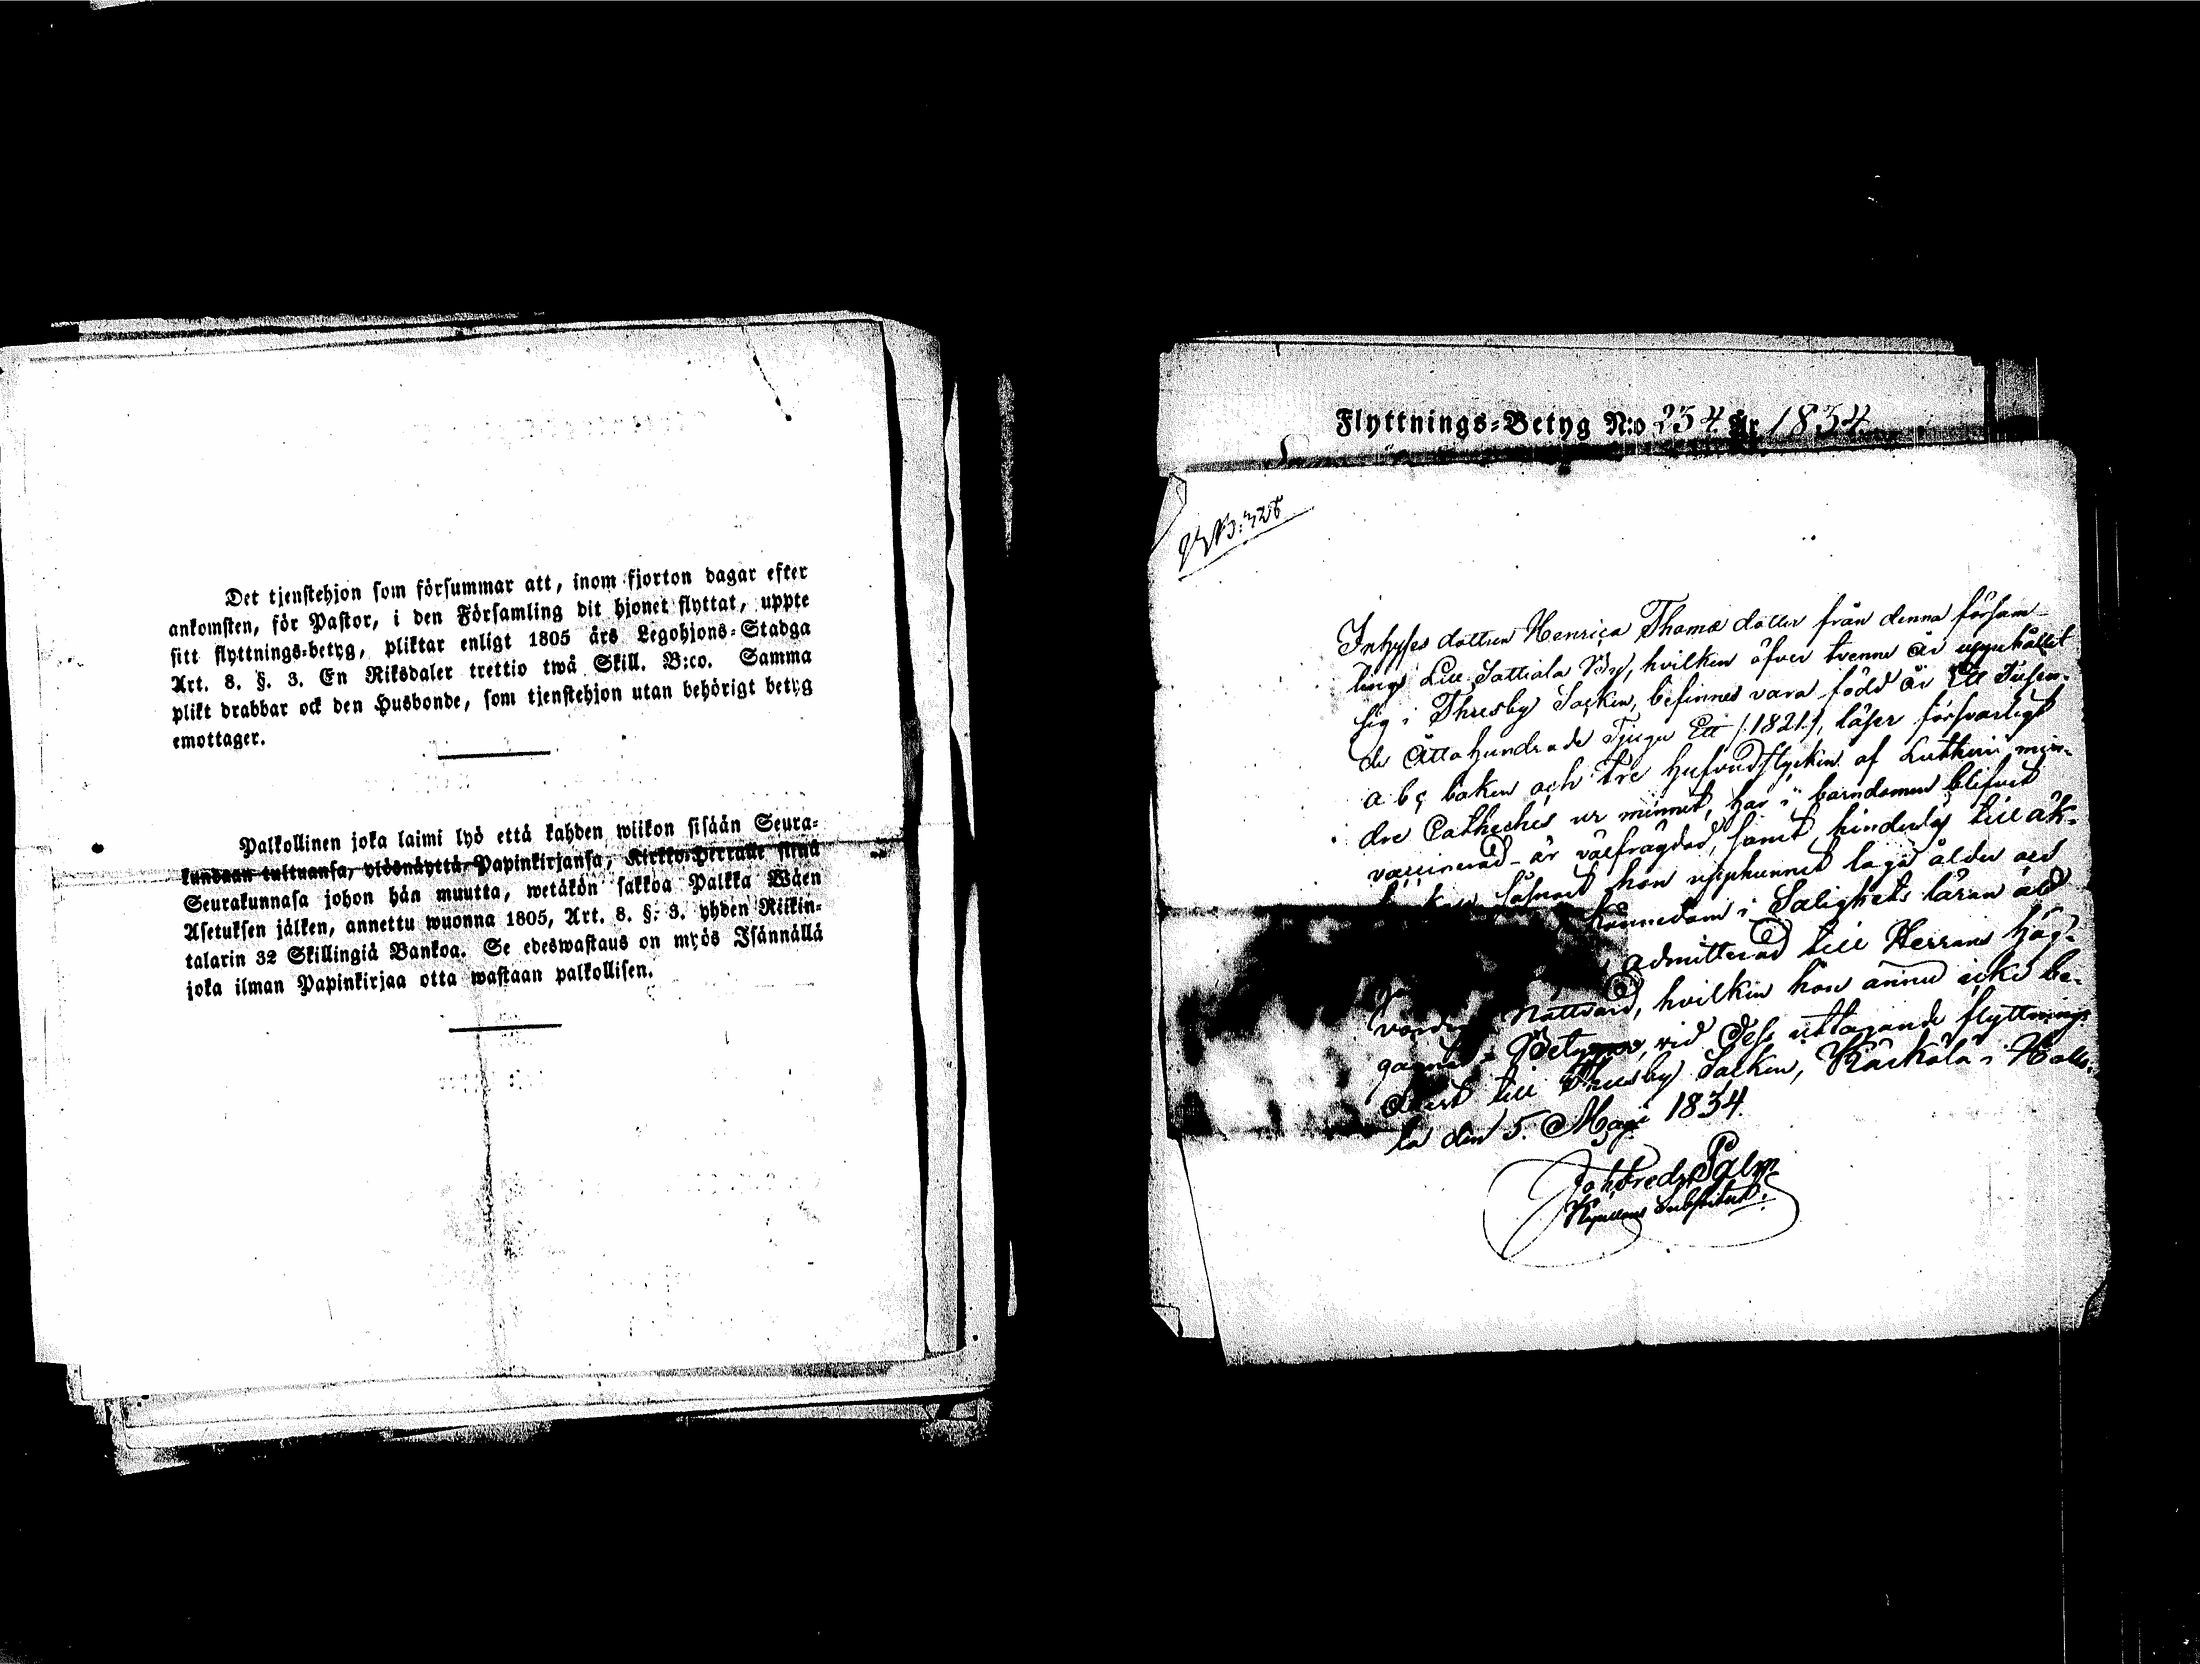 Det tjenstehjon som försummar att, inom fjorton dagar efter
ankomsten, för Pastor, i den Församling dit hjonet flyttat, uppte
sitt flyttnings-betyg, pliktar enligt 1805 års Legohjons-Stadga
Art. 8. §. 3. En Riksdaler trettio twå Skill. B:co. Samma
plikt drabbar ock den Husbonde, som tjenstehjon utan behörigt betyg
emottager.
Palkollinen joka laimi lyö että kahden wiikon sisään Seura-
kundaan tultuansa, ylösnäyttä, Papinkirjansa, Kirkko-Herralle siinä
Seurakunnasa johon hän muutta, wetäkön sakkoa Palkka Wäen
Asetuksen jälken, annettu wuonna 1805, Art. 8. §. 3. yhden Riikin-
talarin 32 Skillingiä Bankoa. Se edeswastaus on myös Isännällä
joka ilman Papinkirjaa otta wastaan palkollisen.
Flyttnings-Betyg N:o 234 År 1834
Inhyses dottren Henrica Thomæ dotter från denna försam-
lings Lill Sattiala By, hvilken öfver trenne år uppehållit
sig i Thresby Socken, befinnes vara född år Ett Tusen-
de Åttahundrade Tjugu Ett /1821/, läser försvarligt
a b c boken och tre hufvudstycken af Lutheri min-
dre Catheches ur minnet, har i barndomen blifvit
vaccinerad - är välfrägdad, samt hinderlös till äk-
hon upphunnit laga ålder och
kännedom i Salighets läran
admitterad till Herrans Hög-
Nattvard, hvilken hon ännu icke be-
gått Betygas, vid dess uttagande flyttnings
till Thresby Socken, Kärkölä i Hollo-
la den 5. Maji 1834.
Joh Fredr Palm
Capellans Substitut.